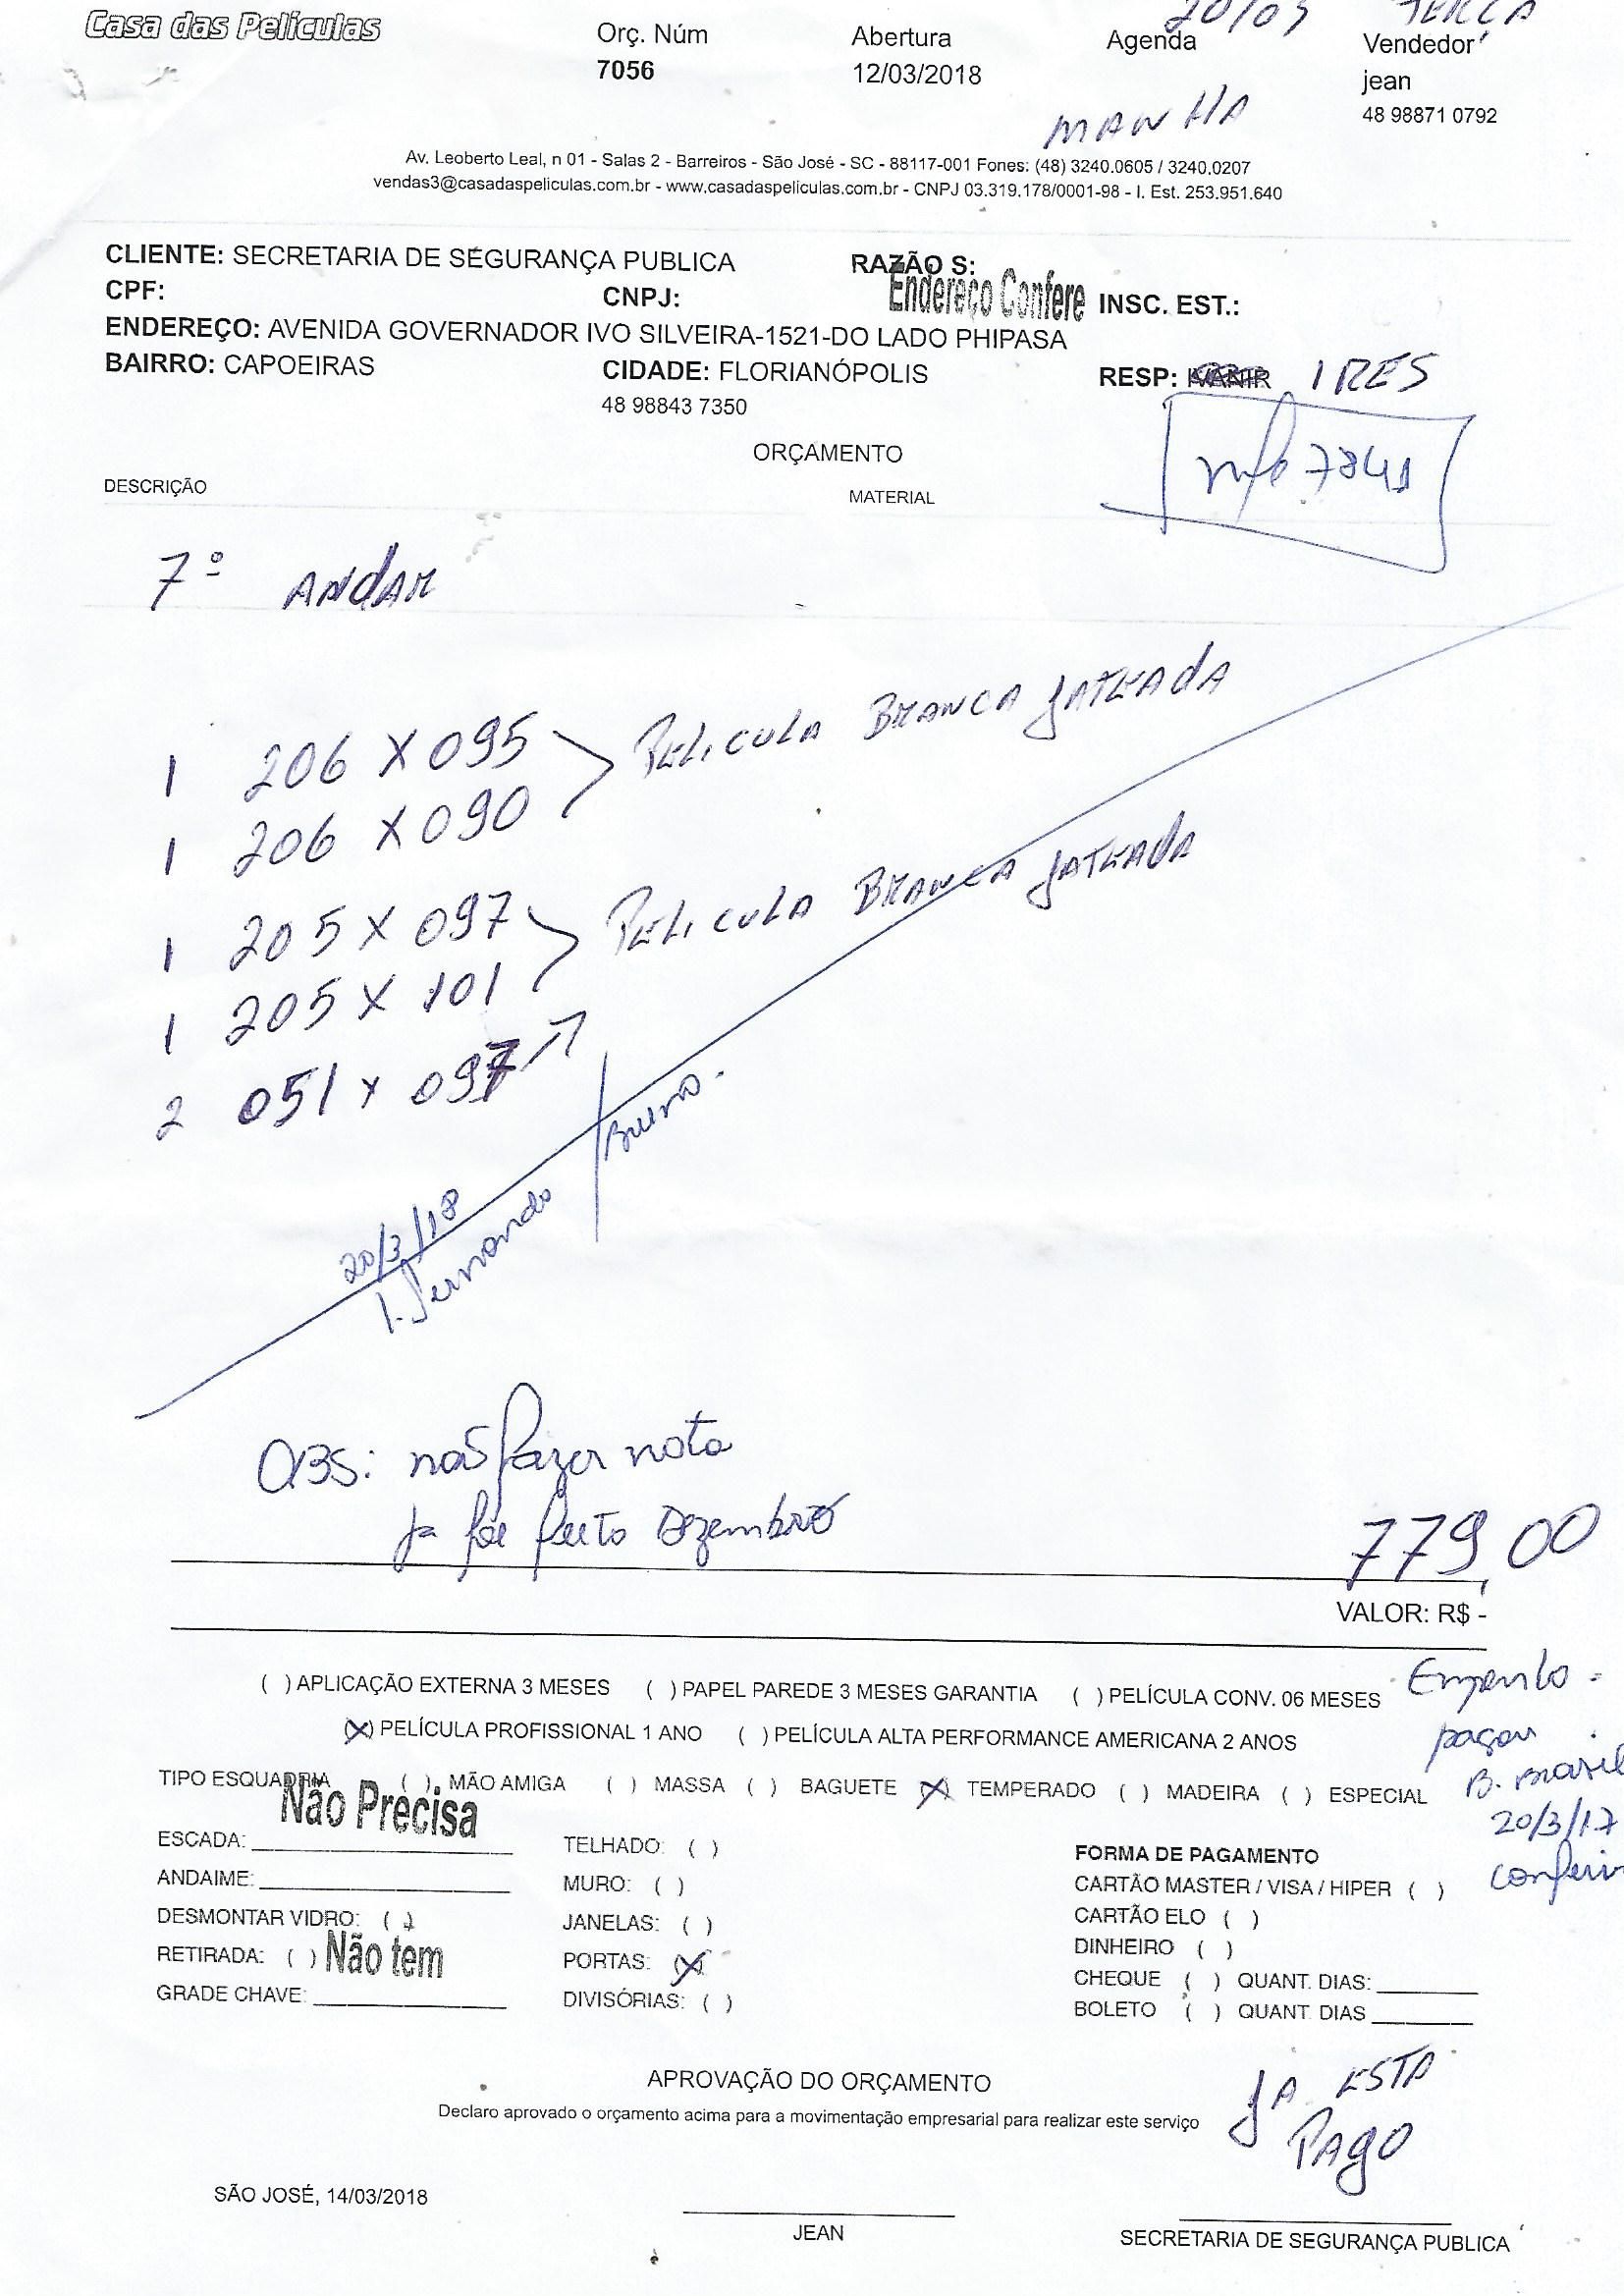 20/03 TERÇA
Casa das Películas
Orç. Núm Abertura Agenda Vendedor
7056 12/03/2018 jean
MANHA 48 98871 0792
Av. Leoberto Leal, n 01 - Salas 2 - Barreiros - São José - SC - 88117-001 Fones: (48) 3240.0605 / 3240.0207
vendas3@casadaspeliculas.com.br - www.casadaspeliculas.com.br - CNPJ 03.319.178/0001-98 - I. Est. 253.951.640
CLIENTE: SECRETARIA DE SEGURANÇA PUBLICA RAZÃO S:
CPF: CNPJ: Endereço Confere INSC. EST.:
ENDEREÇO: AVENIDA GOVERNADOR IVO SILVEIRA-1521-DO LADO PHIPASA
BAIRRO: CAPOEIRAS CIDADE: FLORIANÓPOLIS RESP: IVANIR IRES
48 98843 7350
ORÇAMENTO
DESCRIÇÃO MATERIAL
7841
7º ANDAR
1 206 X 095 PELICULA BRANCA JATEADA
1 206 X 090
1 205 X 097 PELICULA BRANCA JATEADA
1 205 X 101
2 051 x 097
20/3/18
Fernando / Bruno.
OBS: não fazer nota
ja foe feito Dezembro
779,00
VALOR: R$ -
( ) APLICAÇÃO EXTERNA 3 MESES ( ) PAPEL PAREDE 3 MESES GARANTIA ( ) PELÍCULA CONV. 06 MESES
(X) PELÍCULA PROFISSIONAL 1 ANO ( ) PELÍCULA ALTA PERFORMANCE AMERICANA 2 ANOS
Empenho
pagou
B. Brasil
20/3/17
TIPO ESQUADRIA ( ) MÃO AMIGA ( ) MASSA ( ) BAGUETE (X) TEMPERADO ( ) MADEIRA ( ) ESPECIAL
Não Precisa
ESCADA: TELHADO: ( ) FORMA DE PAGAMENTO
ANDAIME: MURO: ( ) CARTÃO MASTER / VISA / HIPER ( )
DESMONTAR VIDRO: ( ) JANELAS: ( ) CARTÃO ELO ( )
RETIRADA: ( ) Não tem PORTAS: (X) DINHEIRO ( )
CHEQUE ( ) QUANT. DIAS:
GRADE CHAVE: DIVISÓRIAS: ( ) BOLETO ( ) QUANT. DIAS
APROVAÇÃO DO ORÇAMENTO
Declaro aprovado o orçamento acima para a movimentação empresarial para realizar este serviço
JA ESTA
PAGO
SÃO JOSÉ, 14/03/2018
JEAN SECRETARIA DE SEGURANÇA PUBLICA